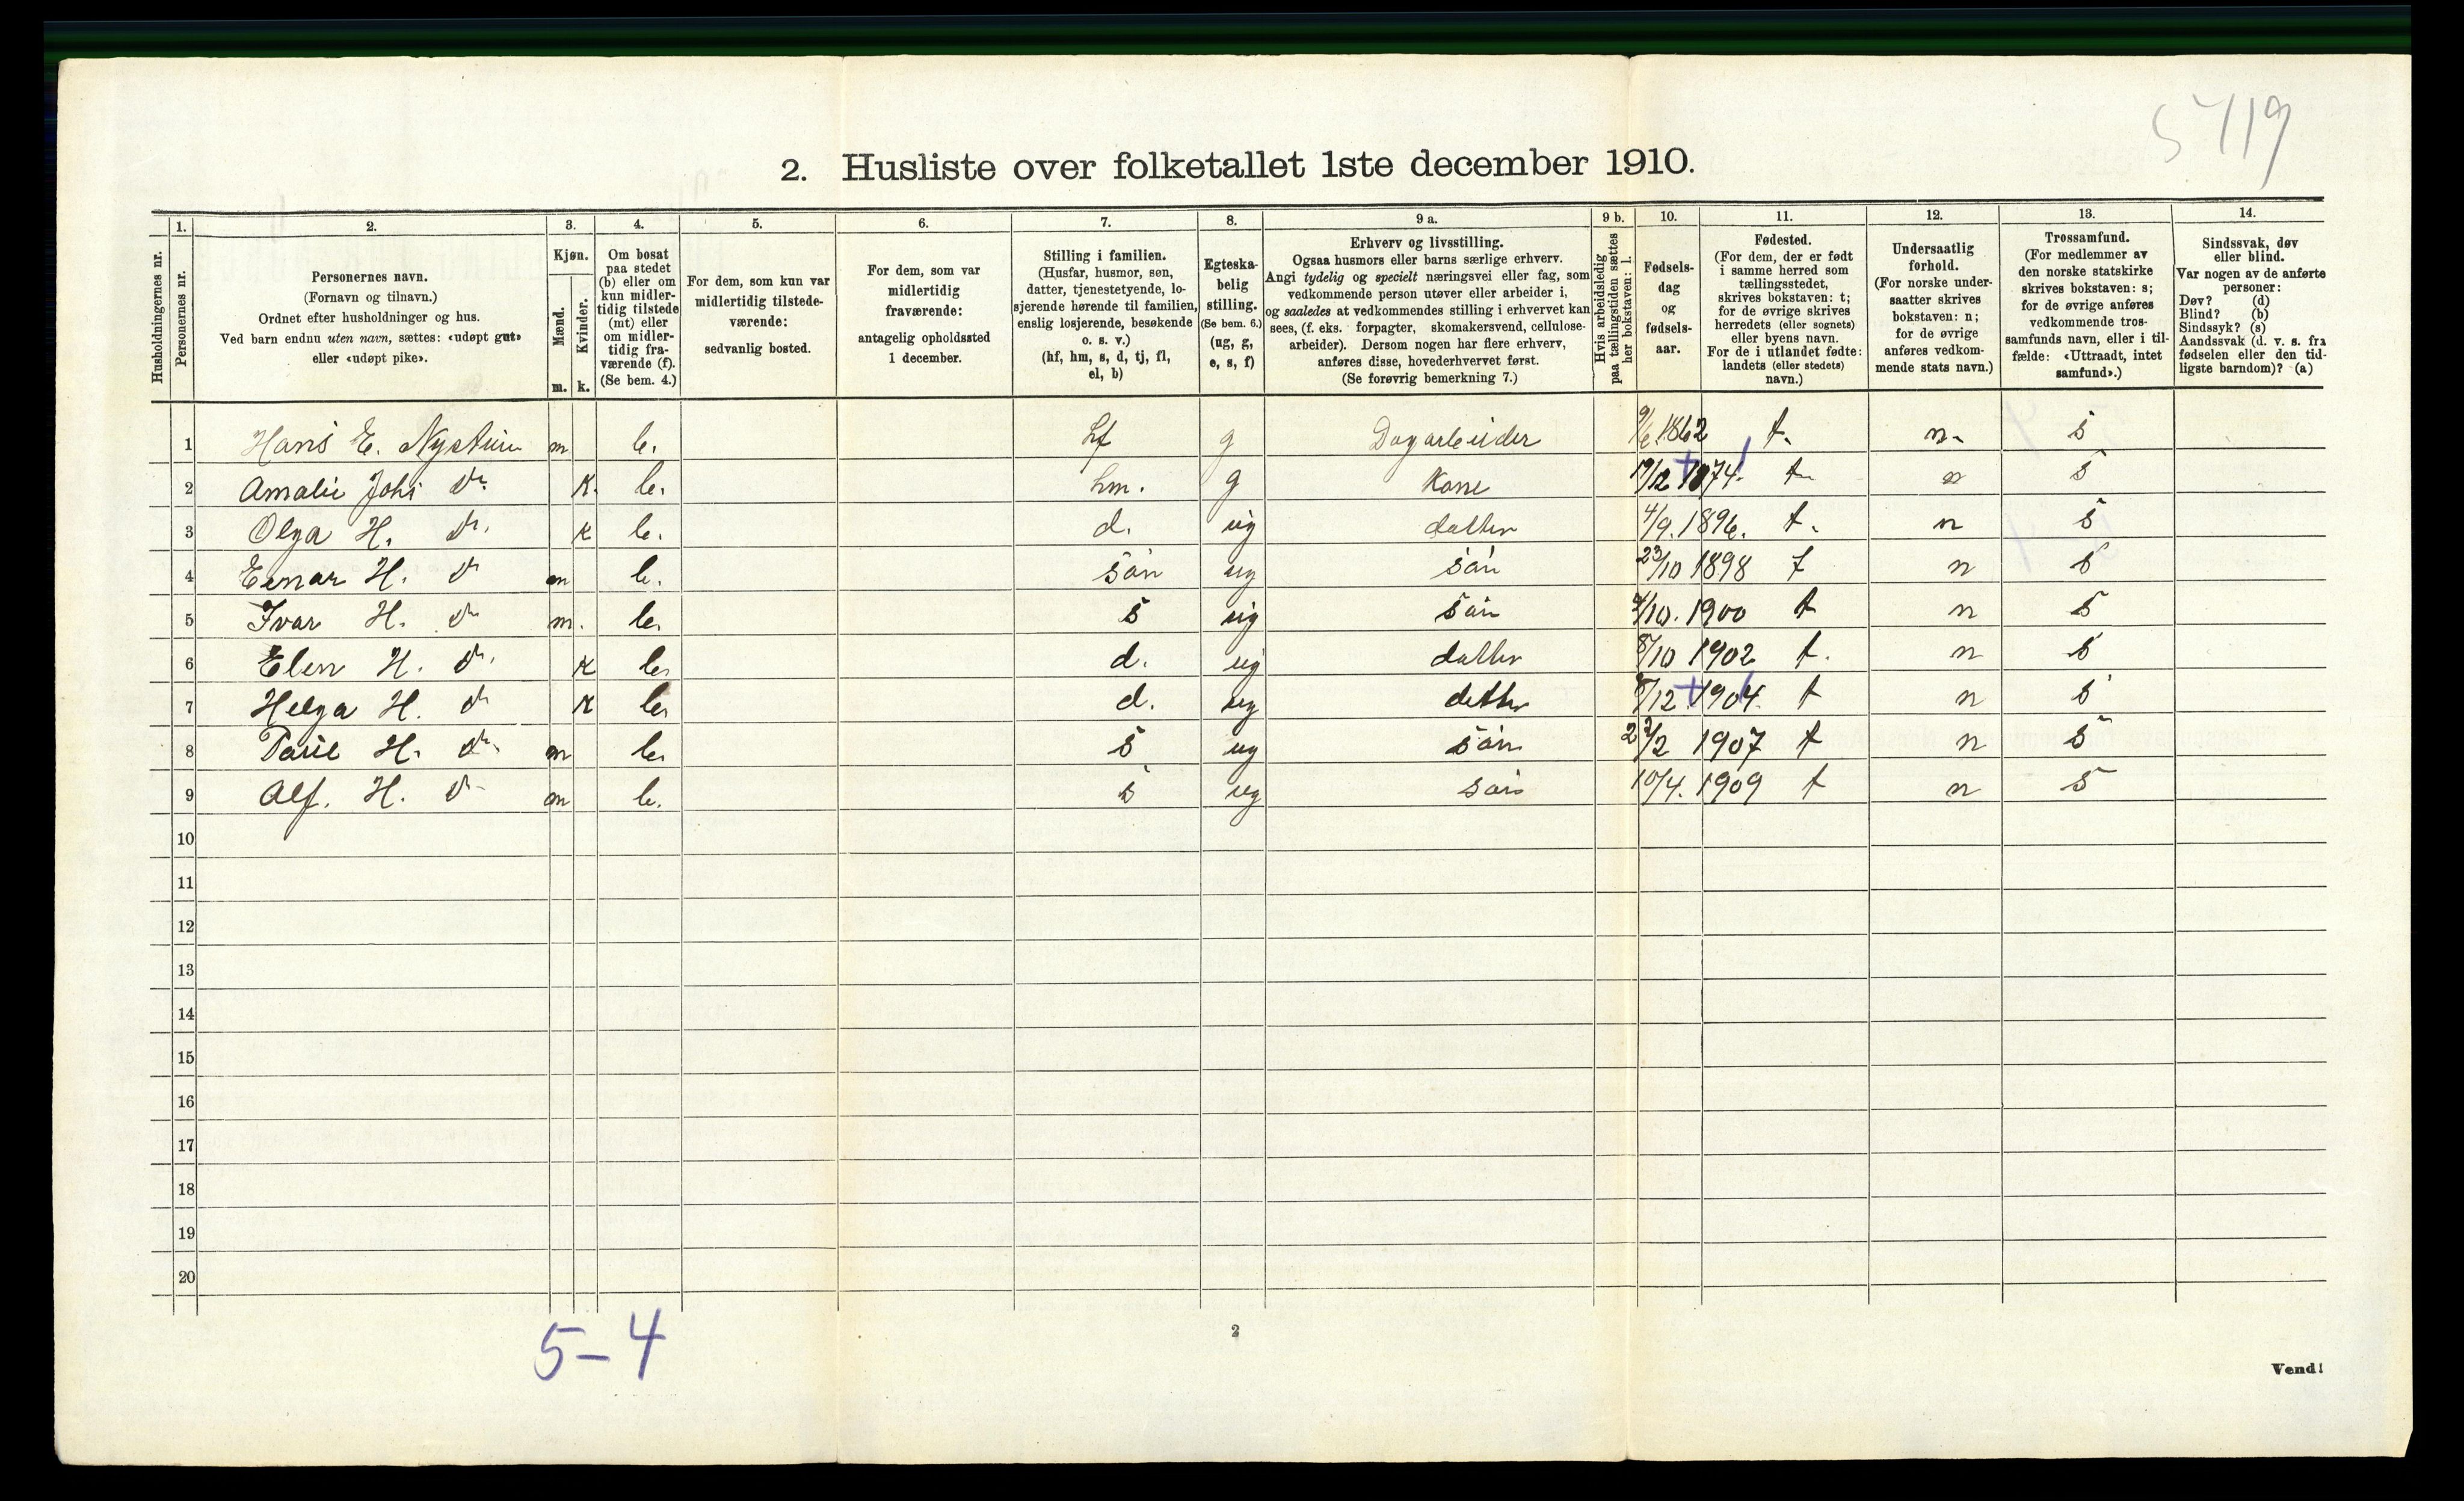 5419
2. Husliste over folketallet 1ste december 1910.
Husholdningernes nr.
1. Personernes nr.
2. Personernes navn. (Fornavn og tilnavn.) Ordnet efter husholdninger og hus. Ved barn endnu uten navn, sættes: «udøpt gut» eller «udøpt pike».
3. Kjøn. Mænd. m. Kvinder. k.
4. Om bosat paa stedet (b) eller om kun midlertidig tilstede (mt) eller om midlertidig fraværende (f). (Se bem. 4.)
5. For dem, som kun var midlertidig tilstedeværende: sedvanlig bosted.
6. For dem, som var midlertidig fraværende: antagelig opholdssted 1 december.
7. Stilling i familien. (Husfar, husmor, søn, datter, tjenestetyende, losjerende hørende til familien, enslig losjerende, besøkende o. s. v.) (hf, hm, s, d, tj, fl, el, b)
8. Egteskabelig stilling. (Se bem. 6.) (ug, g, e, s, f)
9 a. Erhverv og livsstilling. Ogsaa husmors eller barns særlige erhverv. Angi tydelig og specielt næringsvei eller fag, som vedkommende person utøver eller arbeider i, og saaledes at vedkommendes stilling i erhvervet kan sees, (f. eks. forpagter, skomakersvend, cellulosearbeider). Dersom nogen har flere erhverv, anføres disse, hovederhvervet først. (Se forøvrig bemerkning 7.)
9 b. Hvis arbeidsledig paa tællingstiden sættes her bokstaven: l.
10. Fødselsdag og fødselsaar.
11. Fødested. (For dem, der er født i samme herred som tællingsstedet, skrives bokstaven: t; for de øvrige skrives herredets (eller sognets) eller byens navn. For de i utlandet fødte: landets (eller stedets) navn.)
12. Undersaatlig forhold. (For norske undersaatter skrives bokstaven: n; for de øvrige anføres vedkommende stats navn.)
13. Trossamfund. (For medlemmer av den norske statskirke skrives bokstaven: s; for de øvrige anføres vedkommende trossamfunds navn, eller i tilfælde: «Uttraadt, intet samfund».)
14. Sindssvak, døv eller blind. Var nogen av de anførte personer: Døv? (d) Blind? (b) Sindssyk? (s) Aandssvak (d. v. s. fra fødselen eller den tidligste barndom)? (a)
1 Hans E. m b. hf g Dagarbeider 1862 t. n. s
2 Amalie Johs do. K. b. hm. g Kone 19/12 1874. t n s
3 Olga H. do. K b. d. ug datter 4/9. 1896. t. n s
4 Einar H. do m b. sön ug sön 23/10 1898 t n s
5 Ivar H. do m. b. s ug sön 4/10. 1900 t n s
6 Elen H. do. K b. d. ug datter 8/10 1902 t. n s
7 Helga H. do K b. d. ug datter 8/12 1904. t n s
8 H. do. m b. s ug sön 22/2 1907 t n s
9 Alf. H. do m b. s ug sön 10/4. 1909 t n s
10
11
12
13
14
15
16
17
18
19
20
5-4
2
Vend!